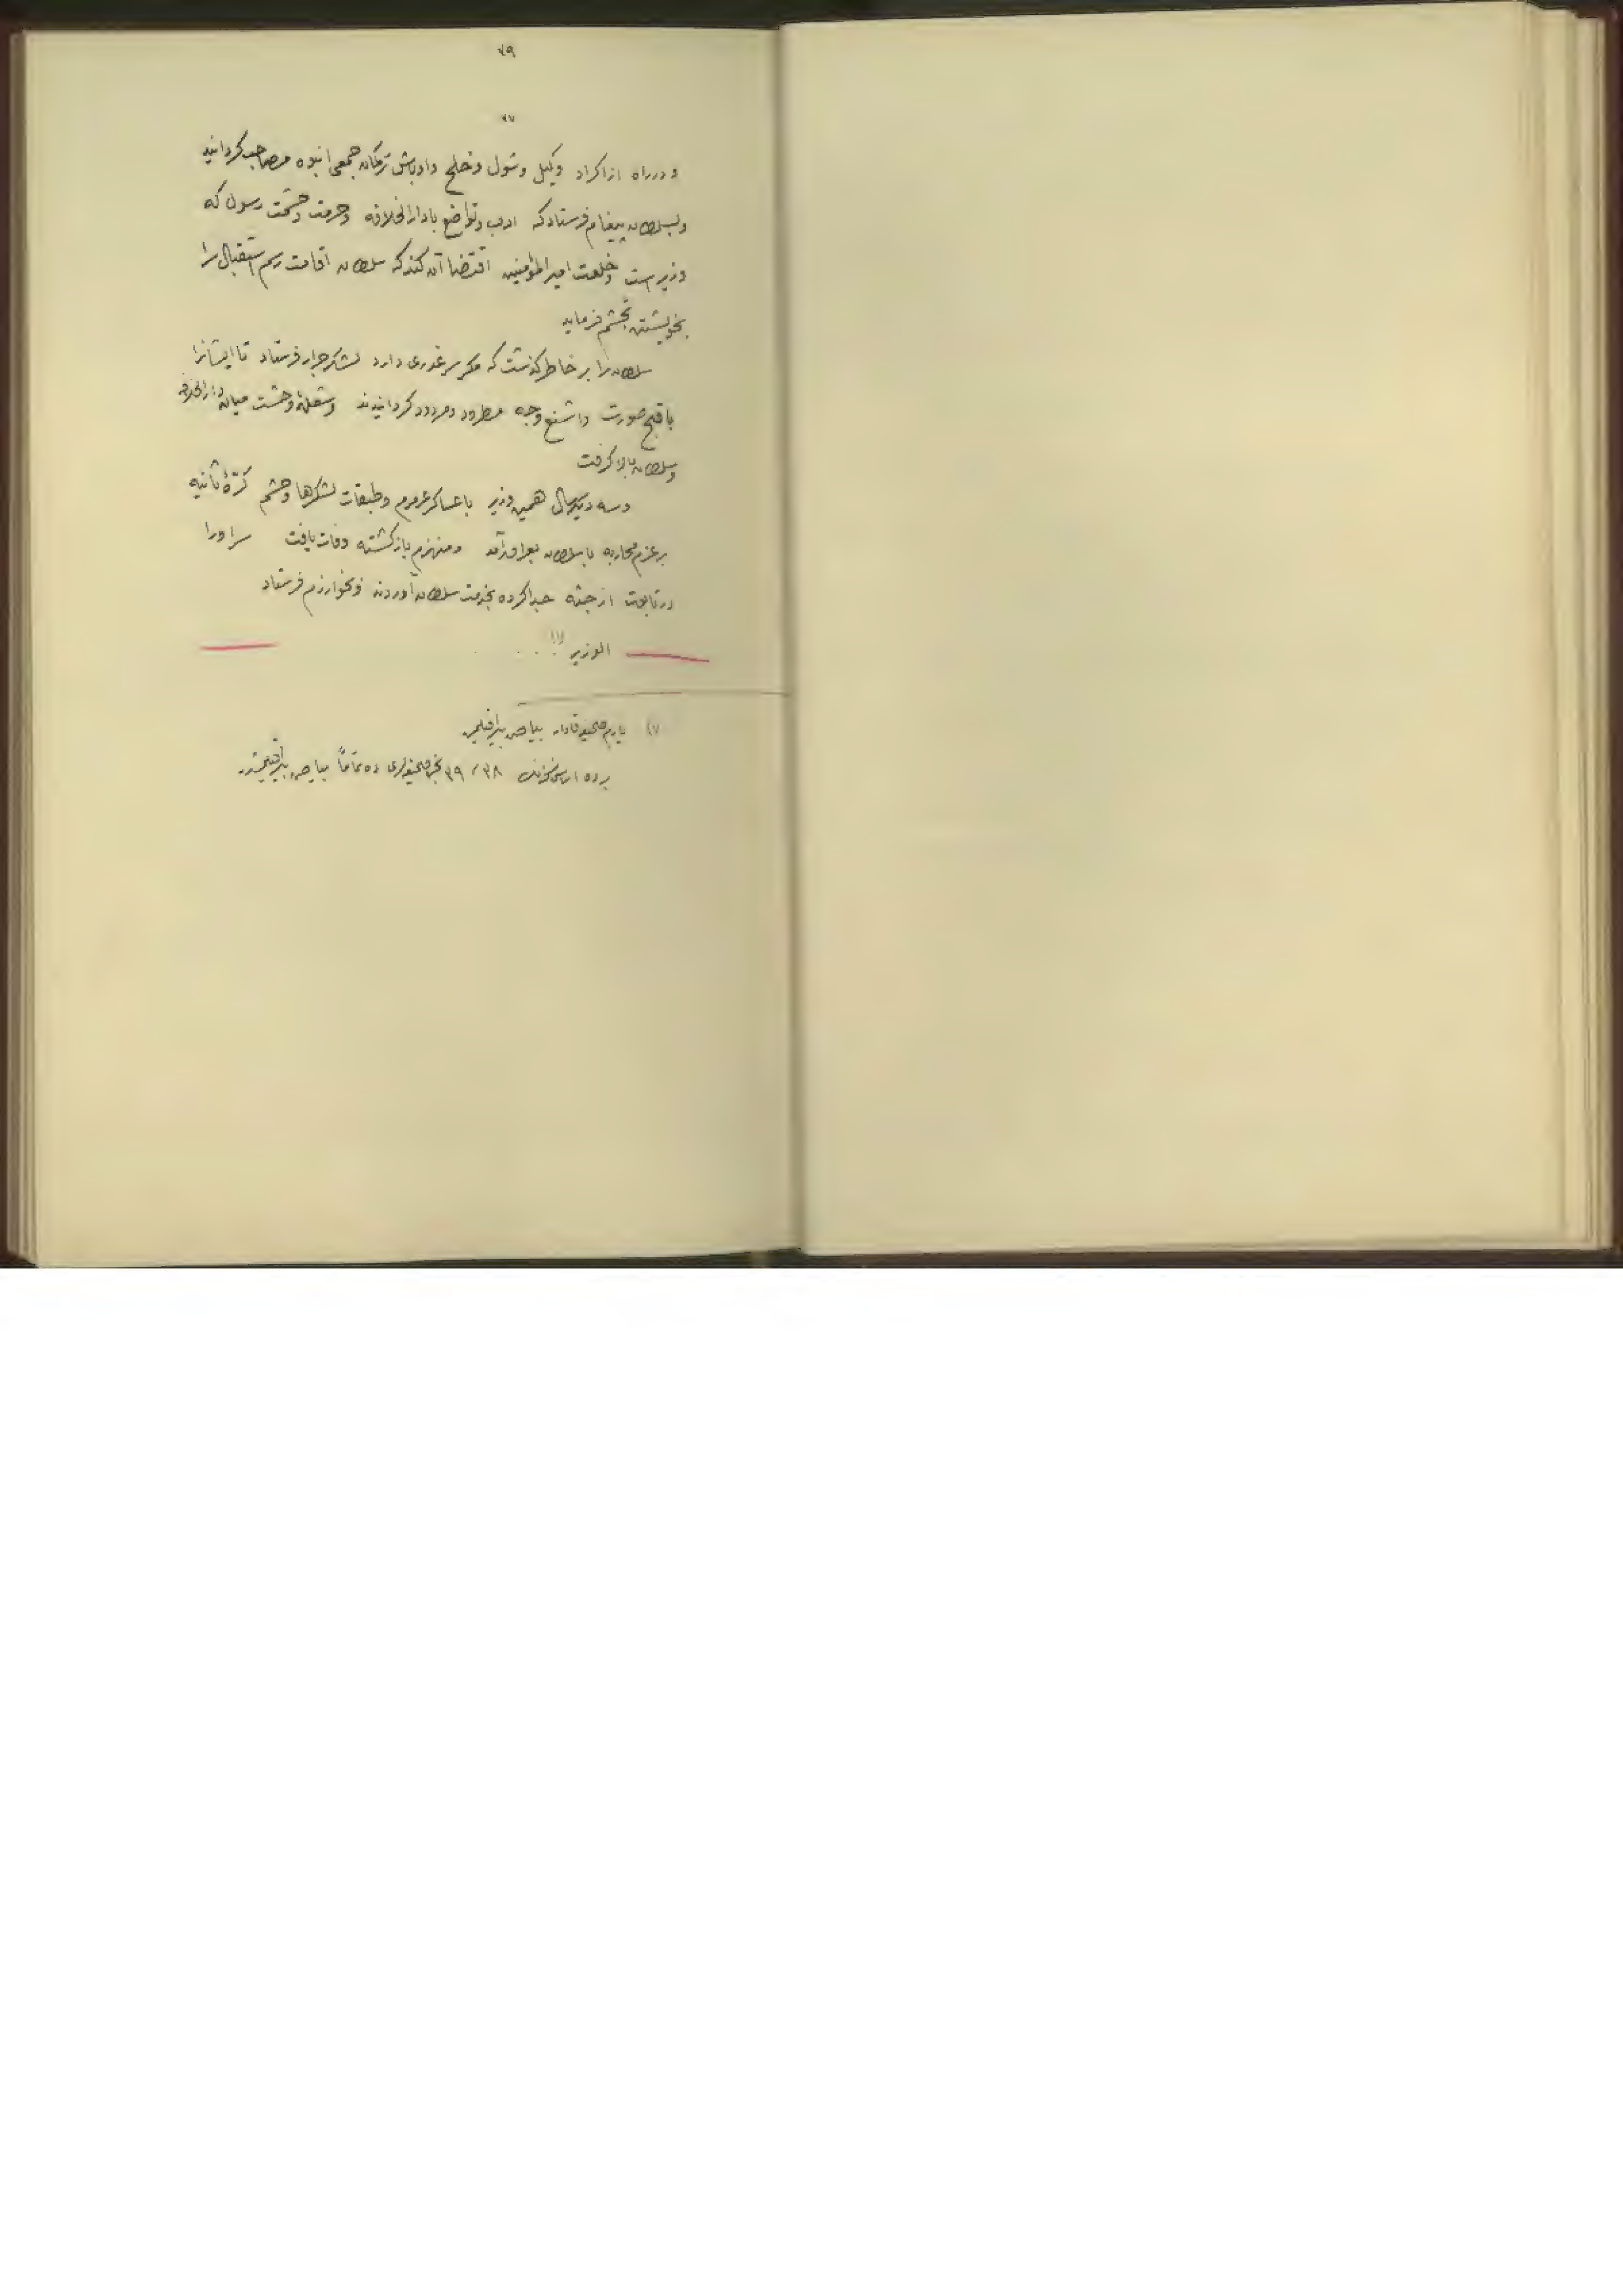 ٧٩
٧٧
و در راه از اکراد وکیل وشول وخلج واوباش ترکان جمعی انبوه مصاحب کردانید
وبسلطان پیغام فرستاد که ادب وتواضع بادار الخلافه وحرمت وحشمت رسول که
وزیر است وخلعت امیر المؤمنین اقتضا آن کند که سلطان اقامت رسم استقبال را
بخویشتن تجشم فرماید
سلطان را بر خاطر کذشت که مکر سر غدری دارد لشکر جرار فرستاد تا ایشانرا
باقبح صورت واشنع وجه مطرود ومردود کردانیدند وشعلۀ وحشت میان دار الخلافه
وسلطان بالا کرفت
وسه دیکر سال همین وزیر با عساکر عرمرم وطبقات لشکرها وحشم کرّۀ ثانیه
بر عزم محاربه با سلطان بعراق آمد ومنهزم بازکشته وفات یافت سر اورا
در تابوت از جثه جدا کرده بخدمت سلطان آوردند وبخوارزم فرستاد
الوزیر . . .
یارم صحیفه قادار بیاض بیراقیلمش
۳۸ / ۳۹ نجی صحیفه لری ده تماماً بیاض بیراقیلمشدر